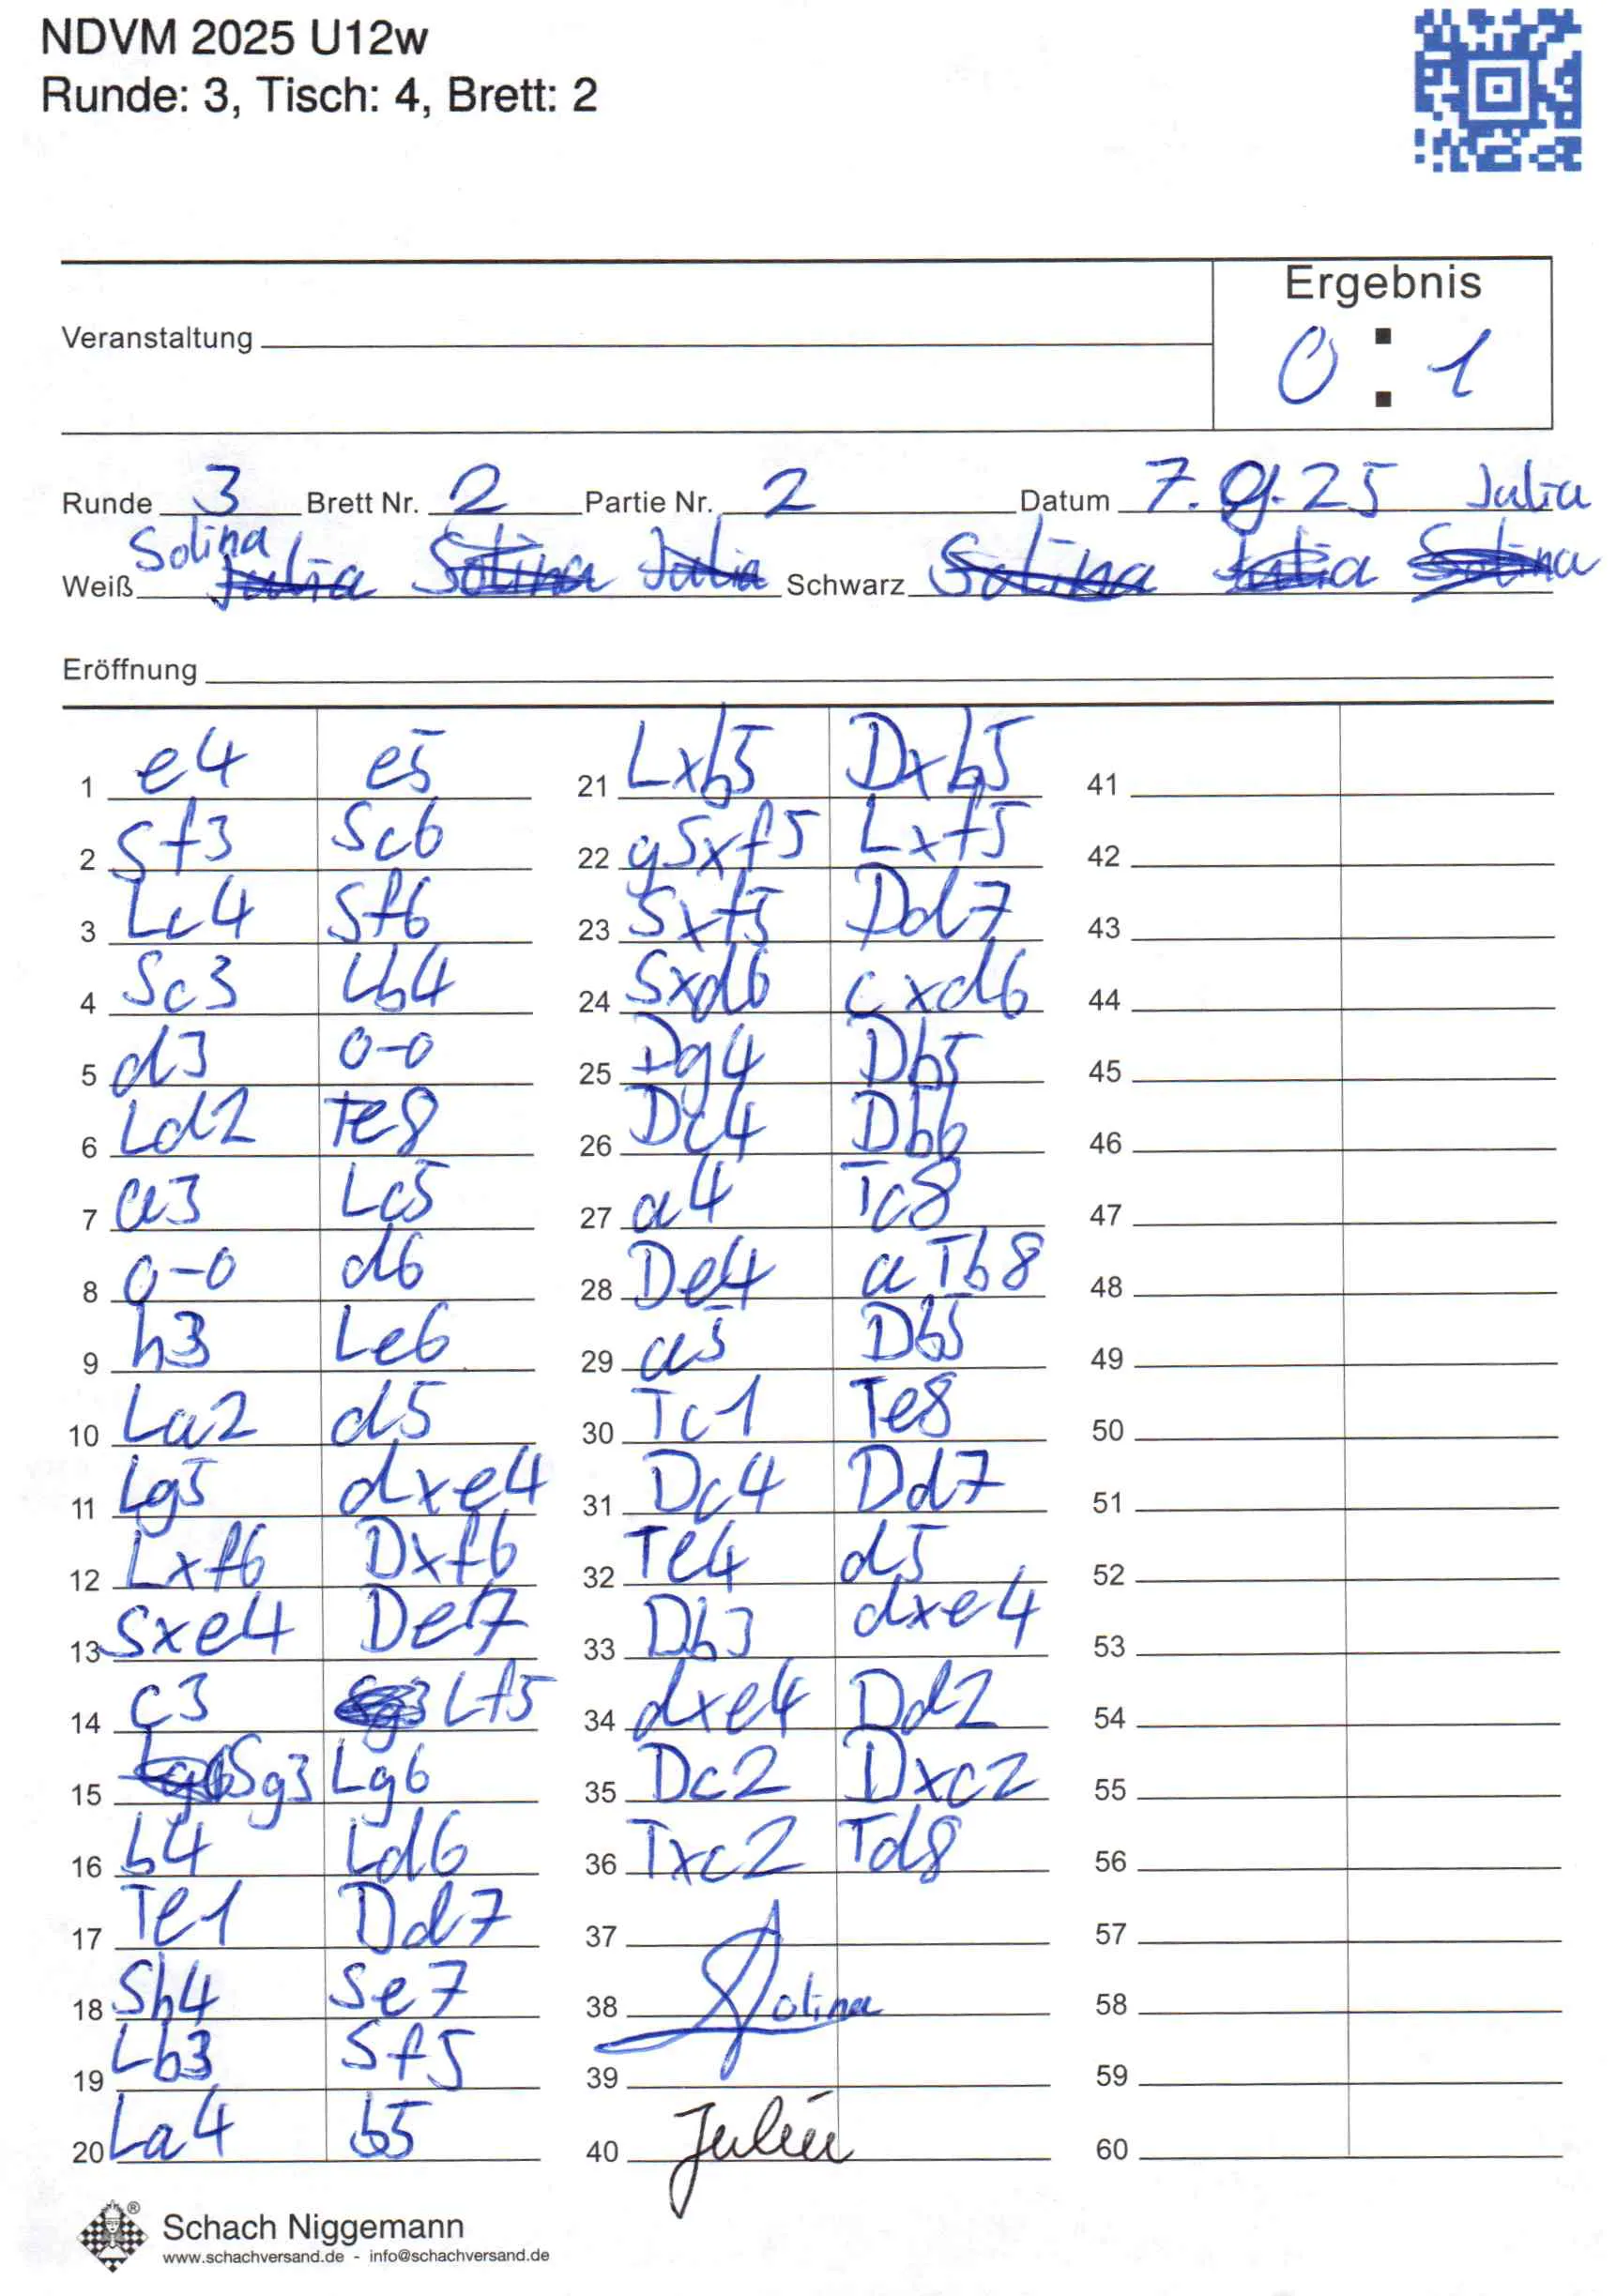 NDVM 2025 U12w
Runde: 3, Tisch: 4, Brett: 2
Ergebnis
Veranstaltung
0 : 1
Runde 3 Brett Nr. 2 Partie Nr. 2 Datum 7.9.25 Julia
Solina
Weiß Julia Solina Julia Schwarz Solina Julia Solina
Eröffnung
1 e4 e5
2 Sf3 Sc6
3 Lc4 Sf6
4 Sc3 Lb4
5 d3 0-0
6 Ld2 Te8
7 a3 Lc5
8 0-0 d6
9 h3 Le6
10 La2 d5
11 Lg5 dxe4
12 Lxf6 Dxf6
13 Sxe4 De7
14 c3 Lf5
15 Sg3 Lg6
16 b4 Ld6
17 Te1 Dd7
18 Sh4 Se7
19 Lb3 Sf5
20 La4 b5
21 Lxb5 Dxb5
22 gSxf5 Lxf5
23 Sxf5 Dd7
24 Sxd6 cxd6
25 Dg4 Db5
26 Dc4 Db6
27 a4 Tc8
28 De4 aTb8
29 a5 Db5
30 Tc1 Te8
31 Dc4 Dd7
32 Te4 d5
33 Db3 dxe4
34 dxe4 Dd2
35 Dc2 Dxc2
36 Txc2 Td8
37
38 Solina
39
40 Julia
41
42
43
44
45
46
47
48
49
50
51
52
53
54
55
56
57
58
59
60
Schach Niggemann
www.schachversand.de - info@schachversand.de